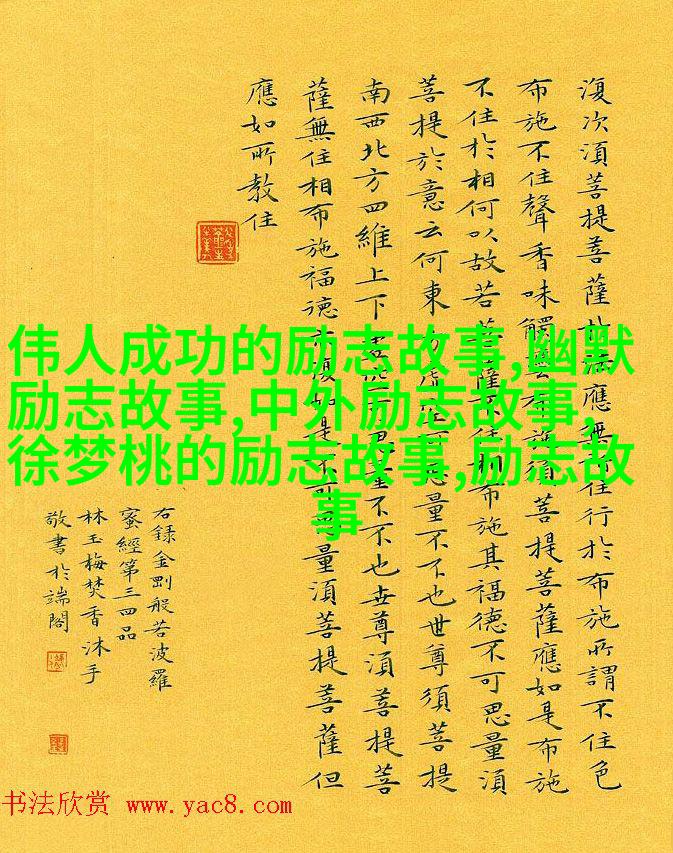 復次湏菩提菩薩於法應無所住行於布施所謂不住色
布施不住聲香味觸法布施須菩提菩薩應如是布施
不住於相何以故若菩薩不住相布施其福德不可思量湏
菩提於意云何東方虛空可思量不不也世尊須菩提
南西北方四維上下虛空可思量不不也世尊湏菩提菩
薩無住相布施福德亦復如是不可思量湏菩提菩薩但
應如所教住
右録金剛般若波羅
蜜經第三四品
林玉梅焚香沐手
敬書於端閣
伟人成功的励志故事,幽默
励志故事,中外励志故事
徐梦桃的励志故事,励志故
事
书法欣赏 www.yac8.com